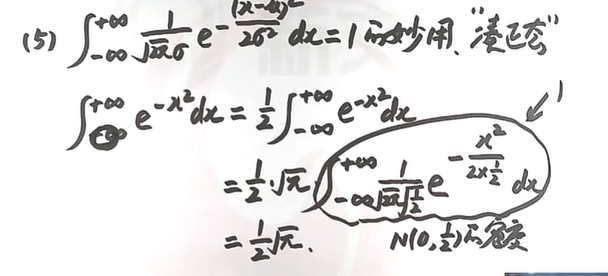 (5) ∫_{-∞}^{+∞} \frac{1}{\sqrt{2π}σ} e^{-\frac{(x-u)^2}{2σ^2}} dx = 1 的妙用、"凑正态"
∫^{+∞} e^{-x^2} dx = \frac{1}{2} ∫_{-∞}^{+∞} e^{-x^2} dx
= \frac{1}{2}·\sqrt{π} ∫_{-∞}^{+∞} \frac{1}{\sqrt{2π}\sqrt{\frac{1}{2}}} e^{-\frac{x^2}{2×\frac{1}{2}}} dx 1
= \frac{1}{2}\sqrt{π}. N(0, \frac{1}{2}) 的密度